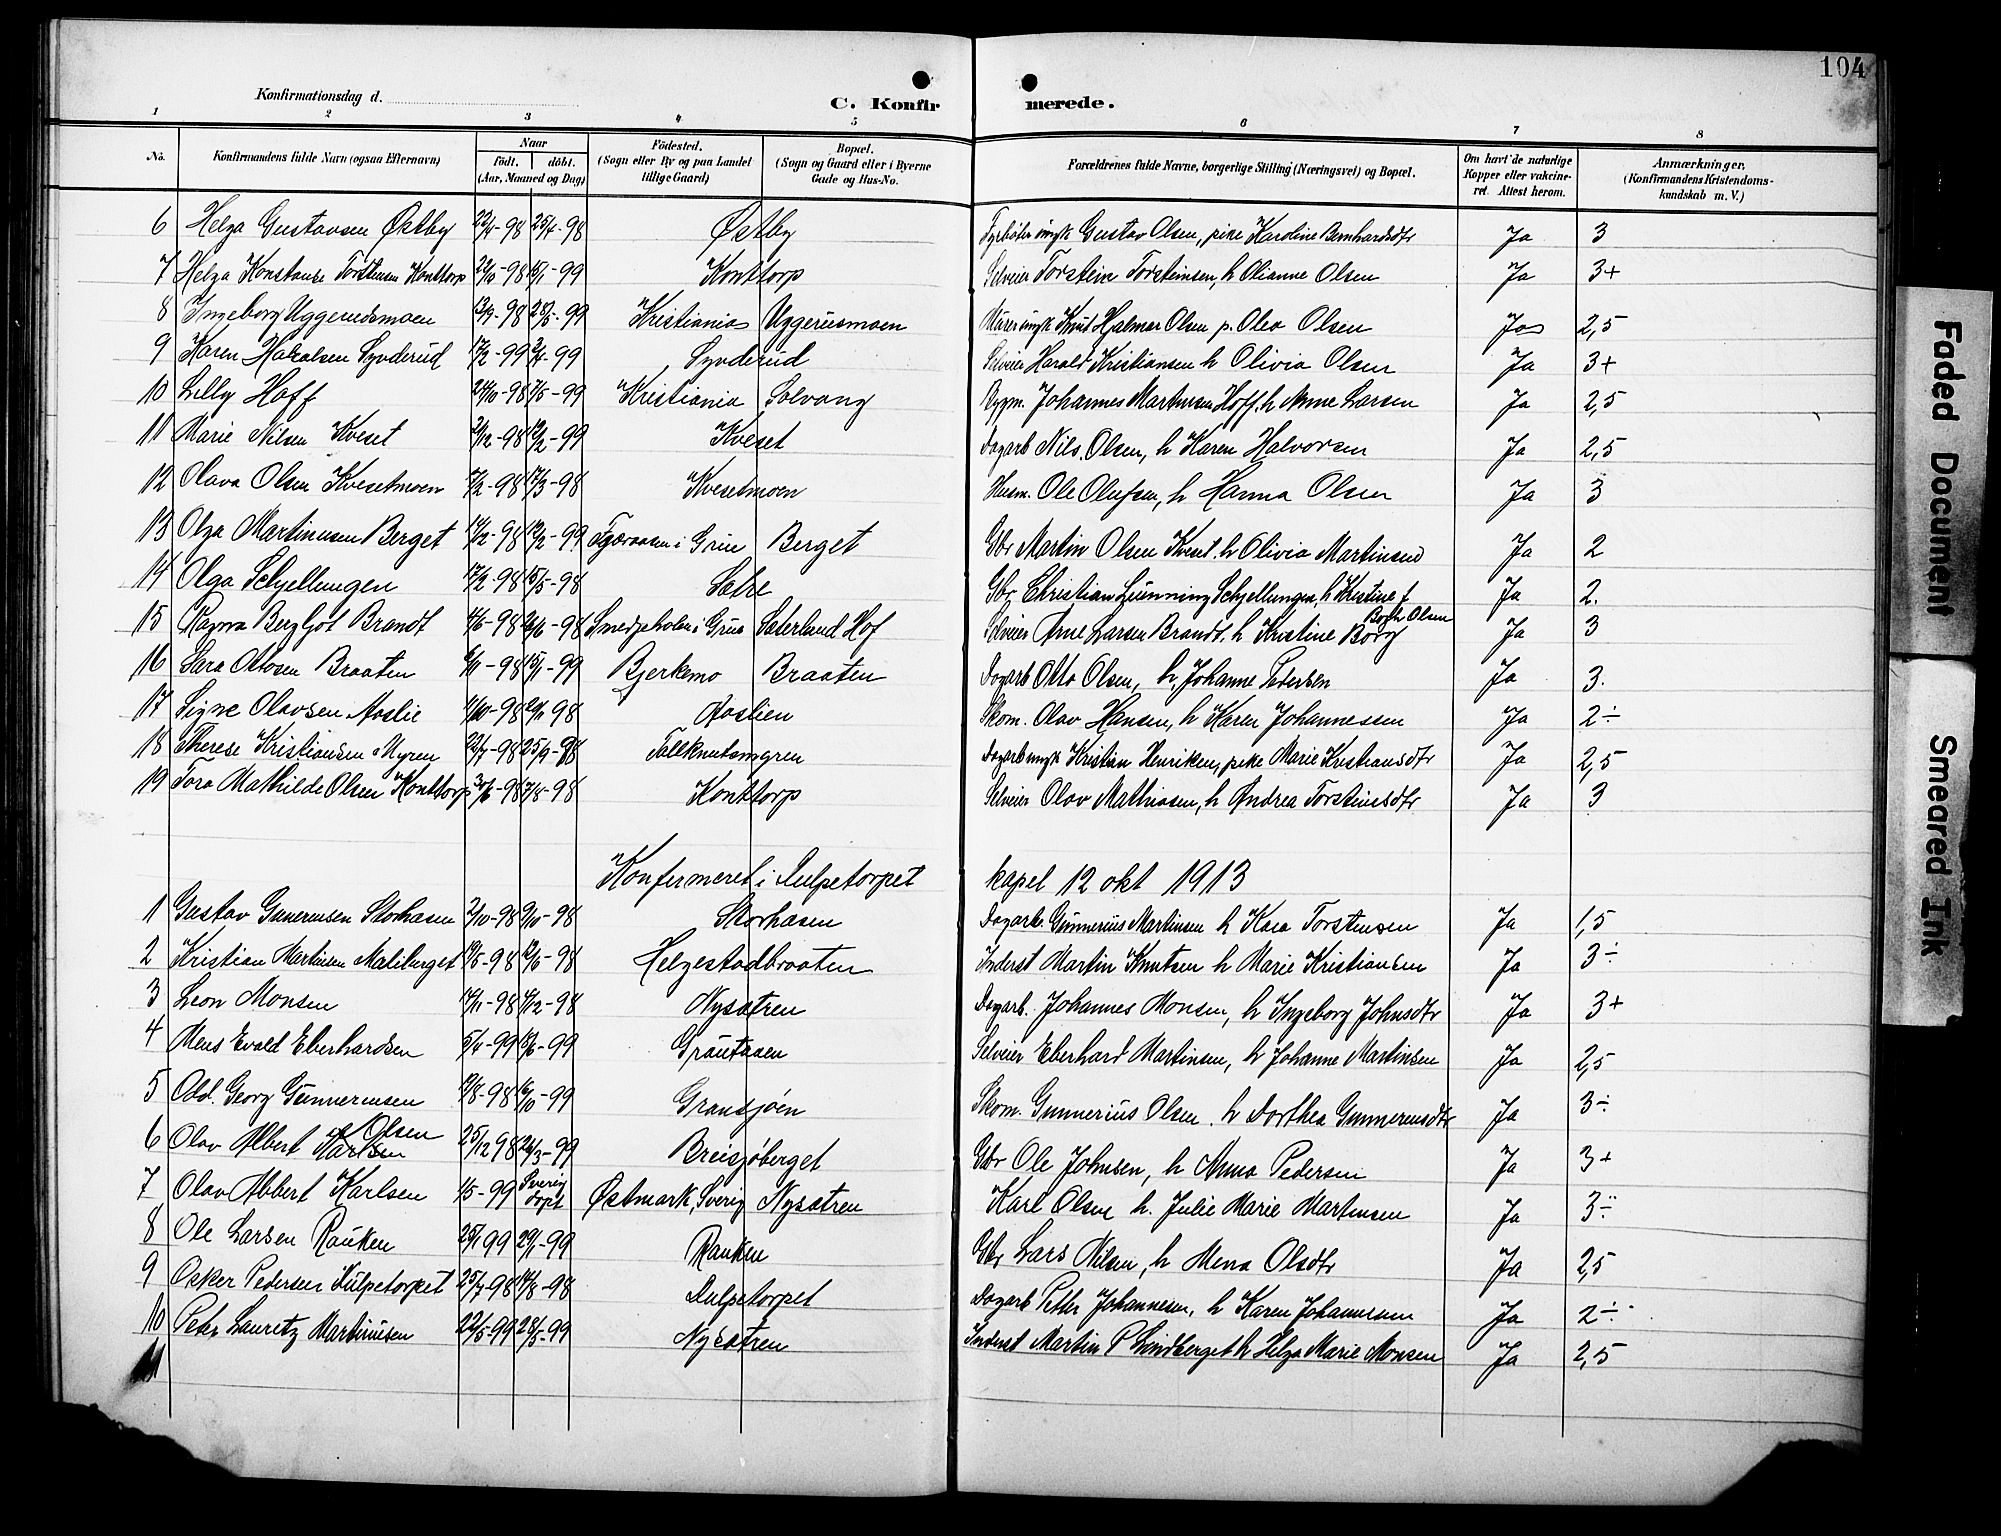 104
Konfirmationsdag d.
C. Konfirmerede.
1 2 3 4 5 6 7 8
No. Konfirmandens fulde Navn (ogsaa Efternavn) Naar födt. döbt. (Aar, Maaned og Dag) Födested. (Sogn eller By og paa Landet tillige Gaard) Bopæl. (Sogn og Gaard eller i Byerne Gade og Hus-No. Forældrenes fulde Navne, borgerlige Stilling (Næringsvei) og Bopæl. Om havt de naturlige Kopper eller vakcineret. Attest herom. Anmærkninger, (Konfirmandens Kristendomskundskab m. V.)
6 Helga Gustavsen Østby 22/4-98 25/4-98 Østby Fyrbøter Gustav Olsen, pike Karoline Bernhardsdtr Ja 3
7 Helga Konstanse Torstensen Konttorp -98 -99 Konttorp Selveier Torstein Torsteinsen, h Olianne Olsen Ja 3+
8 Ingeborg Uggerudsmoen -98 -99 Kristiania Uggerusmoen Knut Hjalmar Olsen p. Olea Olsen Ja 2,5
9 Karen Haralsen Synderud 17/2-99 -99 Synderud Selveier Harald Kristiansen h Olivia Olsen Ja 3+
10 Lilly Hoff 24/10-98 7/5-99 Kristiania Solvang Johannes Martinsen Hoff. h Anne Larsen Ja 2,5
11 Marie Nilsen Kveset -98 -99 Kveset Dagarb Nils Olsen, h Karen Halvorsen Ja 2,5
12 Olava Olsen Kvesetmoen -98 17/3-98 Kvesetmoen Husm. Ole Olufsen, h Hanna Olsen Ja 3
13 Olga Martinusen Berget -98 -99 i Grue Berget Gbr Martin Olsen Kveset. h Olivia Martinsen Ja 2
14 Olga Schjellungen 17/2-98 15/5-98 Sætre Gbr Christian Schjellungen, h Kristine f Bogh Olsen Ja 2.
15 Ragna Bergljot Brandt -98 -98 i Grue Sæterland Hof Selveier Arne Larsen Brandt. h Kristine Borg Ja 3
16 Sara Ottosen Braaten -98 15/1-99 Bjerkemo Braaten Dagarb Otto Olsen, h, Johanne Pedersen Ja 3.
17 Signe Olavsen Aaslie -98 -98 Aaslien Skom. Olav Hansen, h Karen Johannessen Ja 2÷
18 Therese Kristiansen Myren 22/7-98 25/9-98 Dagarb ungk Kristian Henriksen, pike Marie Kristiansdtr Ja 2,5
19 Tora Mathilde Olsen Konttorp -98 7/8-98 Konttorp Selveier Olav Mathiasen, h Andrea Torstensdtr Ja 3
Konfirmeret i Lulpetorpet kapel 12 okt 1913
1 Gustav Gunerusen Storhasen 2/10-98 9/10-98 Storhasen Dagarb. Gunnerius Martinsen h Kaia Torstensen Ja 1,5
2 Kristian Martinsen Maliberget 19/5-98 -98 Helgestadbraaten Inderst Martin Knutsen h Marie Kristiansen Ja 3÷
3 Leon Monsen -98 -98 Nysætren Dagarb. Johannes Monsen, h Ingeborg Johnsdtr Ja 3+
4 Mens Evald Eberhardsen 5/4-99 -99 Selveier Eberhard Martinsen, h Johanne Martinsen Ja 2,5
5 Odd. Georg Gunnerusen -98 -99 Gransjøen Skom. Gunnerius Olsen. h Dorthea Gunnerusdtr Ja 3÷
6 Olav Albert Karlsen Olsen 25/12 98 -99 Breisjøberget Gbr Ole Johnsen, h Anna Pedersen Ja 3+
7 Olav Albert Karlsen 1/5-99 Sverig døpt Østmark, Sverig Nysætren Karl Olsen h. Julie Marie Martinsen Ja 3÷
8 Ole Larsen Rauken 25/1 99 29/1-99 Rauken Gbr Lars Nilsen, h Mena Olsdtr Ja 2,5
9 Osker Pedersen Lulpetorpet 25/7-98 14/8-98 Lulpetorpet Dagarb Peter Johannesen, h Karen Johannesen Ja 2÷
10 Peter Lauritz Martinusen 22/5-99 28/5-99 Nysætren Inderst Martin P Lindberget h Helga Marie Monsen Ja 2,5
11
Faded Document
Smeared Ink